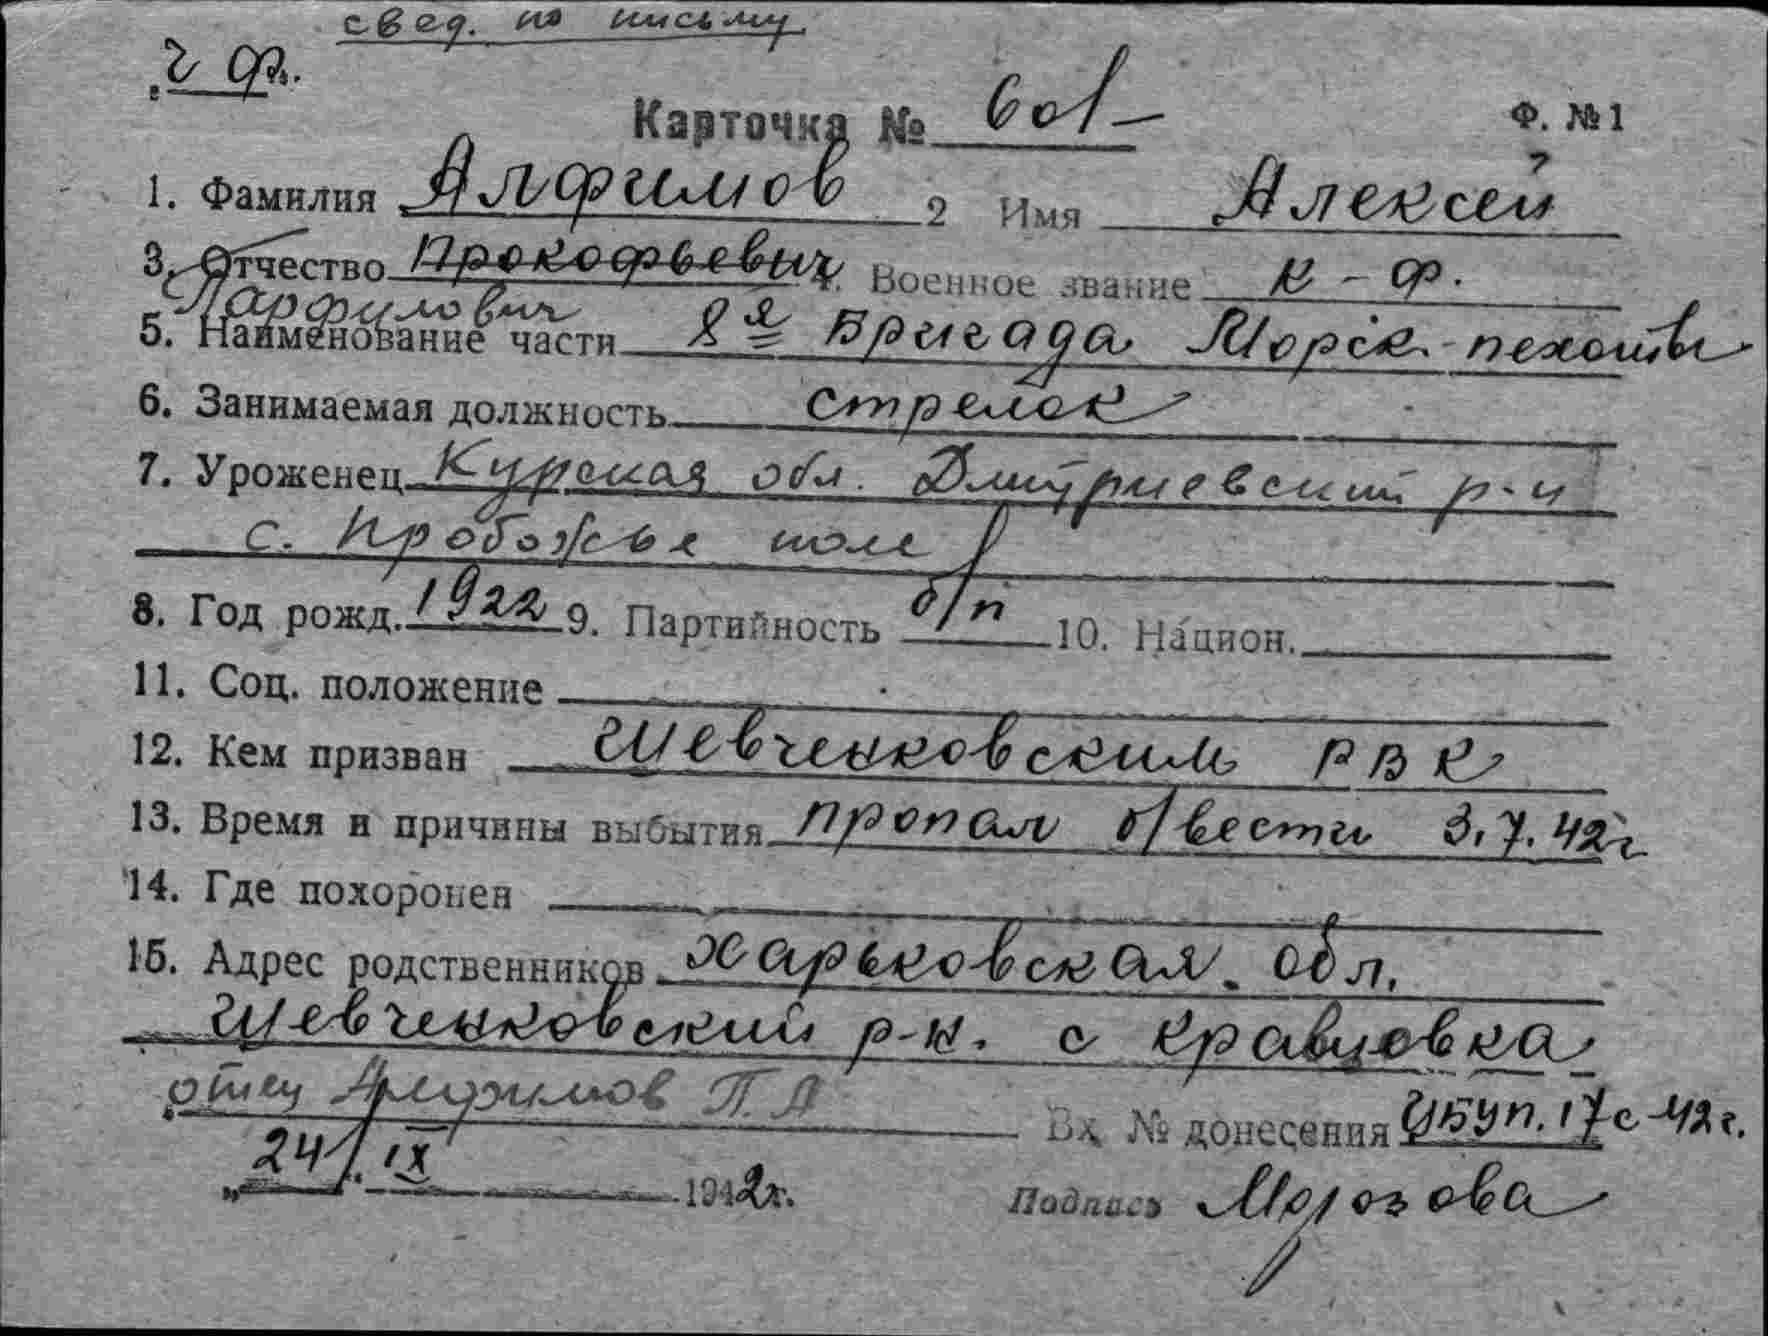 свед. по письму
ч ф.
Карточка № 601- Ф. № 1
1. Фамилия Алфимов 2 Имя Алексей
3. Отчество Прокофьевич 4. Военное звание к-ф.
Парфилович
5. Наименование части 8я Бригада Морск. пехоты
6. Занимаемая должность стрелок
7. Уроженец Курская обл. Дмитриевский р-н
с. Пробожье поле
8. Год рожд. 1922 9. Партийность б/п 10. Национ.
11. Соц. положение
12. Кем призван Шевченковским РВК
13. Время и причины выбытия пропал б/вести 3.7.42г
14. Где похоронен
15. Адрес родственников Харьковская обл.
Шевченковский р-н. с Кравцовка
отец Алфимов П. А
Вх № донесения ЦБУп. 17с-42г.
„ 24/. IX 1942г.
Подпись Морозова